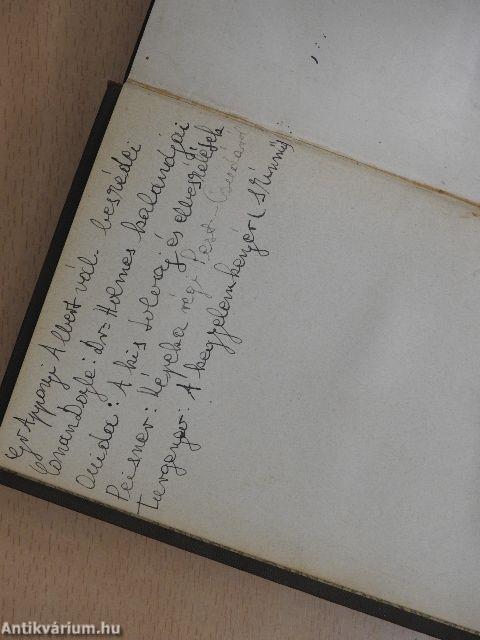 Gr Apponyi Albert vál. beszédei
Conan Doyle: Dr= Holmes kalandjai
Ouida: A kis tolvaj és elbeszélések
Peisner: Képek a régi Pest-Budáról
Turgenyev: A kegyelemkenyér (színmű)
Antikvárium.hu